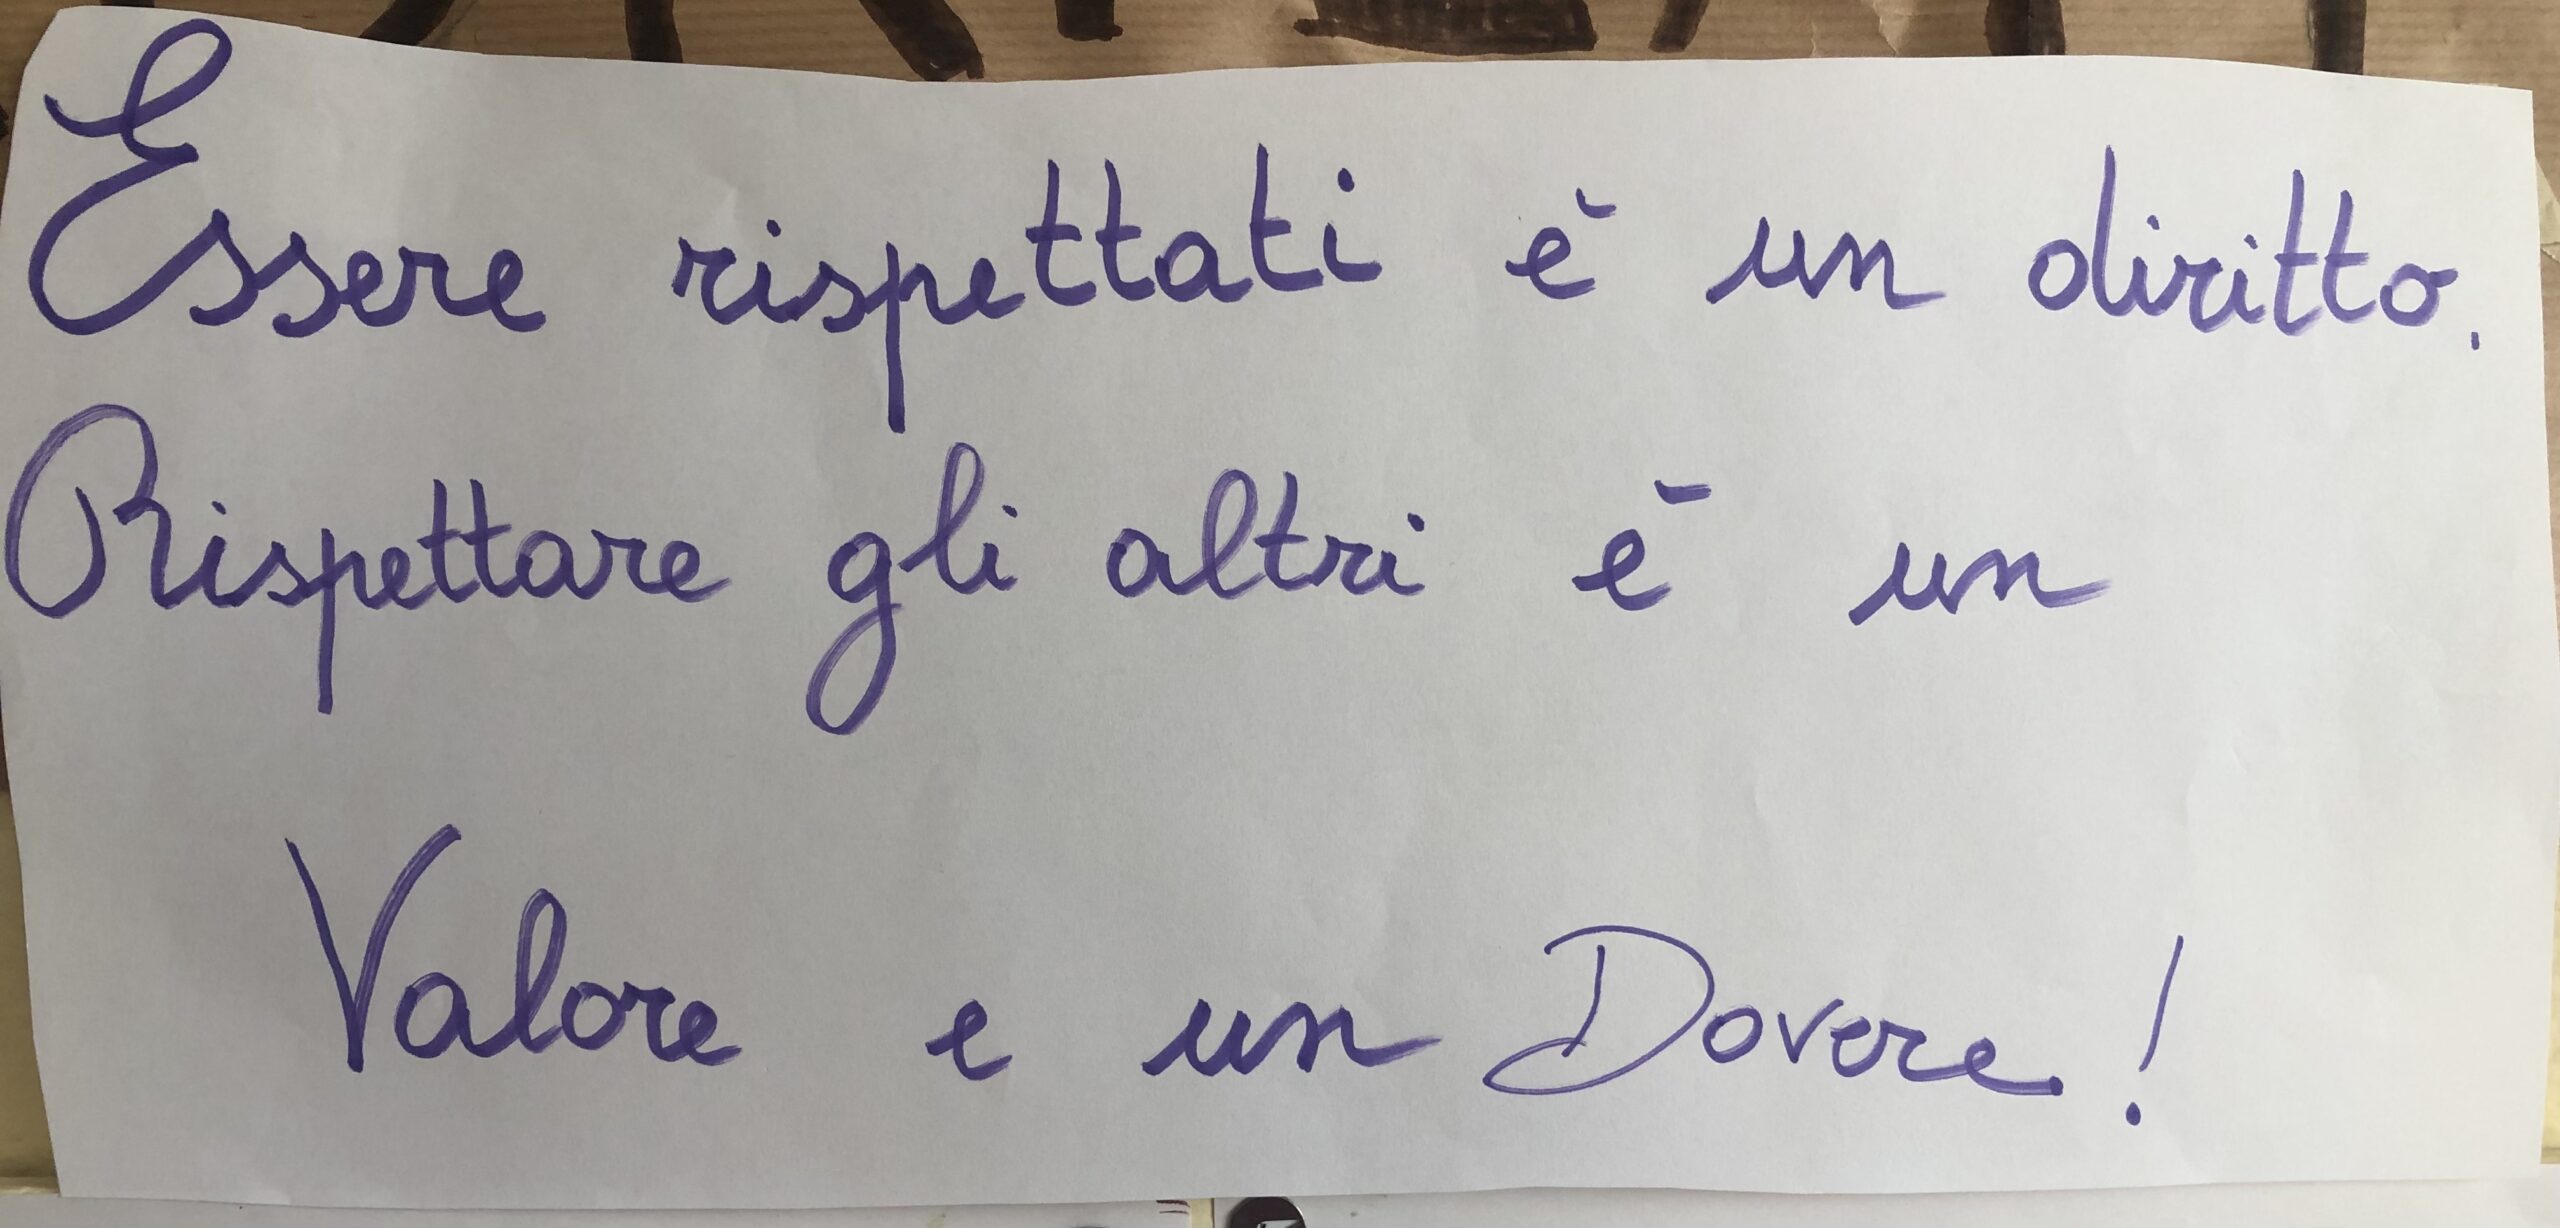 Essere rispettati è un diritto.
Rispettare gli altri è un
Valore e un Dovere!